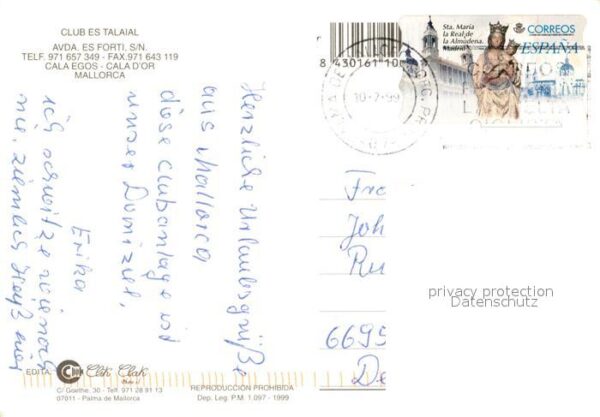 CLUB ES TALAIAL
AVDA. ES FORTI, S/N.
TELF. 971 657 349 - FAX.971 643 119
CALA EGOS - CALA D'OR
MALLORCA
Herzliche Urlaubsgrüße
aus Mallorca
diese Clubanlage ist
unser Domizil,
Erika
ich schwitze wie noch
nie, ziemlich heiß hier
EDITA:
Clik Clak
C/ Goethe, 30 - Tel. 971 28 91 13
07011 - Palma de Mallorca
REPRODUCCION PROHIBIDA
Dep. Leg. P.M. 1.097 - 1999
8 430161 10
Sta. María
la Real de
la Almudena.
CORREOS
ESPAÑA
10-7-99
Fra
Joh
Ru
6695
De
privacy protection
Datenschutz